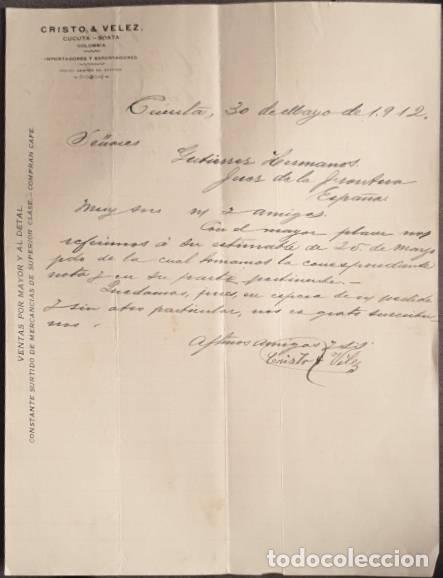 CRISTO, & VELEZ.
CUCUTA - SOATA
COLOMBIA
IMPORTADORES Y EXPORTADORES
VENTAS POR MAYOR Y AL DETAL.
CONSTANTE SURTIDO DE MERCANCIAS DE SUPERIOR CLASE.- COMPRAN CAFE.
Cucuta, 30 de Mayo de 1.912.
Señores
Gutierrez Hermanos.
Jerez de la Frontera
España.
Muy sres n/ y amigos.
Con el mayor placer nos
referimos á su estimable de 25 de Marzo
ppdo de la cual tomamos la correspondiente
nota y en su parte pertinente.-
Quedamos, pues, en espera de n/ pedido
y sin otro particular, nos es grato suscribir
nos.
Afmos amigos y S.S.
Cristo & Velez
todocoleccion
todocoleccion.net